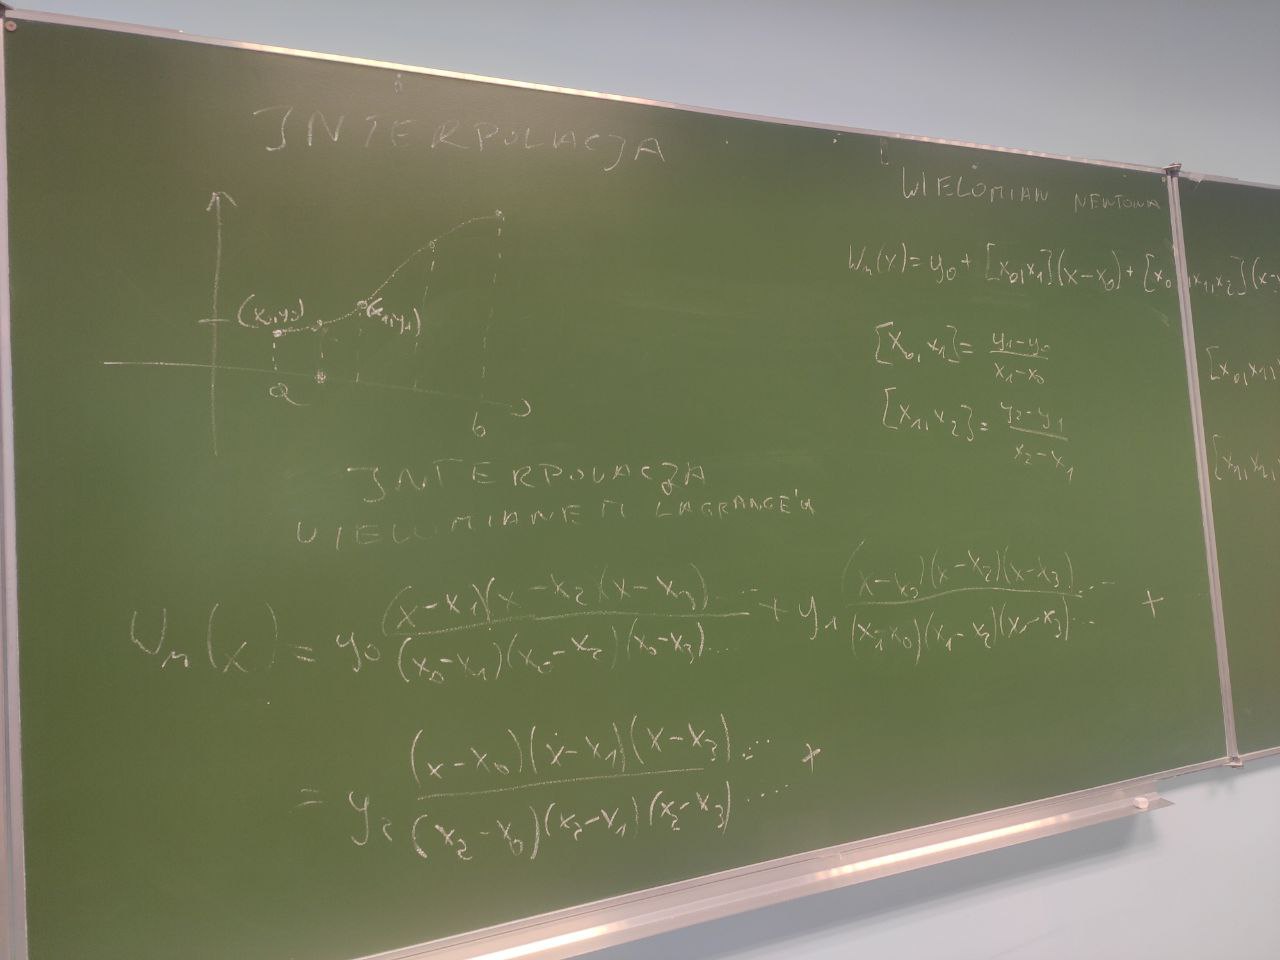 INTERPOLACJA
(x₀,y₀)
(x₁,y₁)
a
b
INTERPOLACJA
WIELOMIANEM LAGRANGE'A
Wₙ(x) = y₀ (x-x₁)(x-x₂)(x-x₃)... / (x₀-x₁)(x₀-x₂)(x₀-x₃)... + y₁ (x-x₀)(x-x₂)(x-x₃)... / (x₁-x₀)(x₁-x₂)(x₁-x₃)... +
= y₂ (x-x₀)(x-x₁)(x-x₃)... / (x₂-x₀)(x₂-x₁)(x₂-x₃).... +
WIELOMIAN NEWTONA
Wₙ(x) = y₀ + [x₀,x₁](x-x₀) + [x₀,x₁,x₂](x-
[x₀,x₁] = y₁-y₀ / x₁-x₀
[x₁,x₂] = y₂-y₁ / x₂-x₁
[x₀,x₁,
[x₁,x₂,